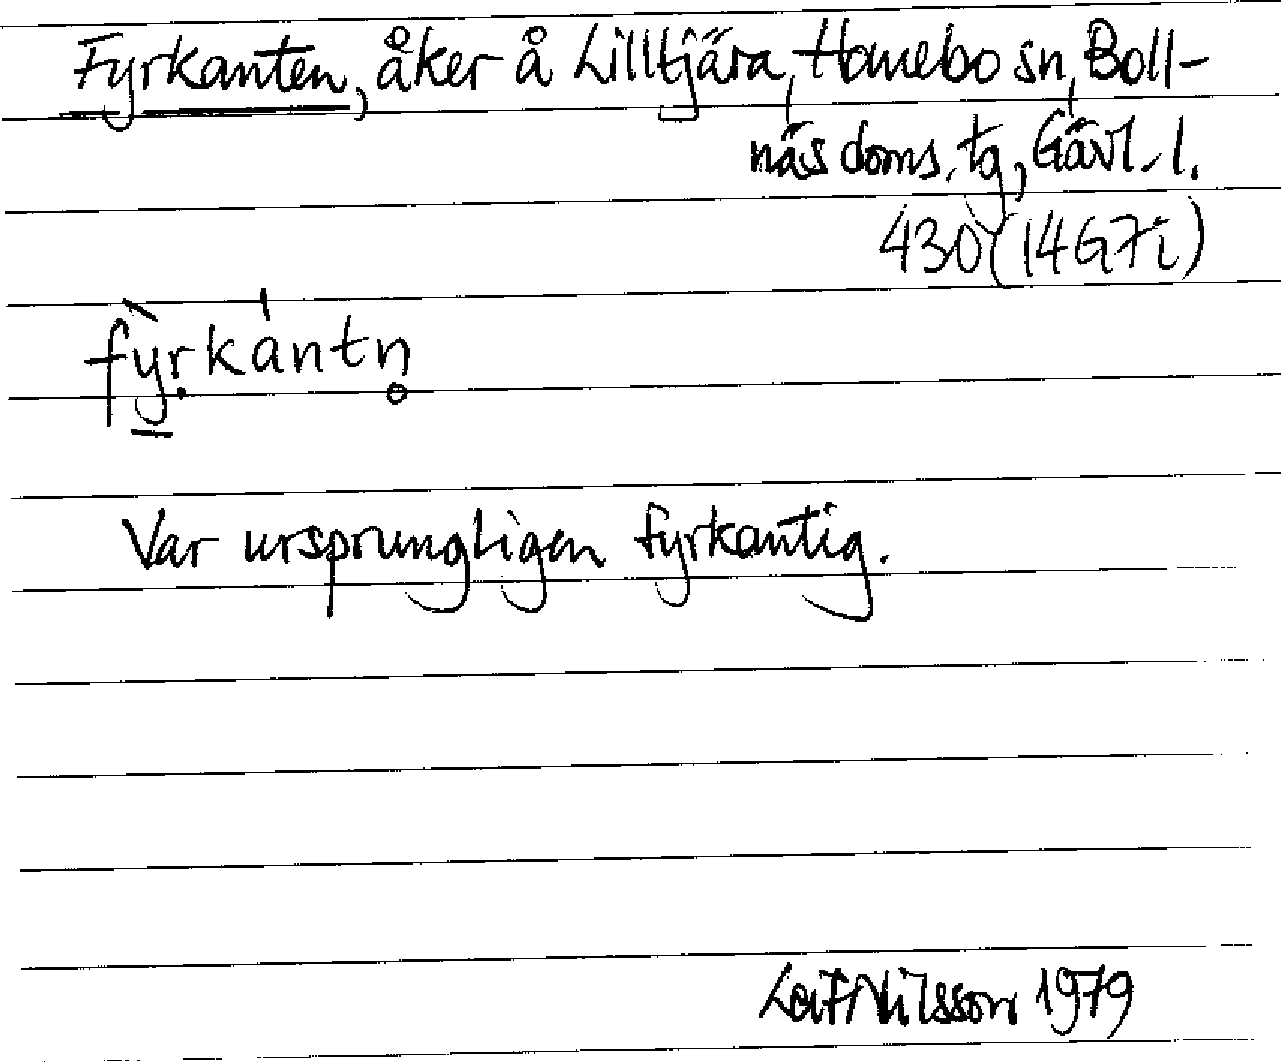 Fyrkanten, åker å Lilltjära, Hanebo sn, Boll-
näs doms. tg, Gävl. l.
430 (14G7i)
fỳ̲rkántn̥
Var ursprungligen fyrkantig.
Leif Nilsson 1979